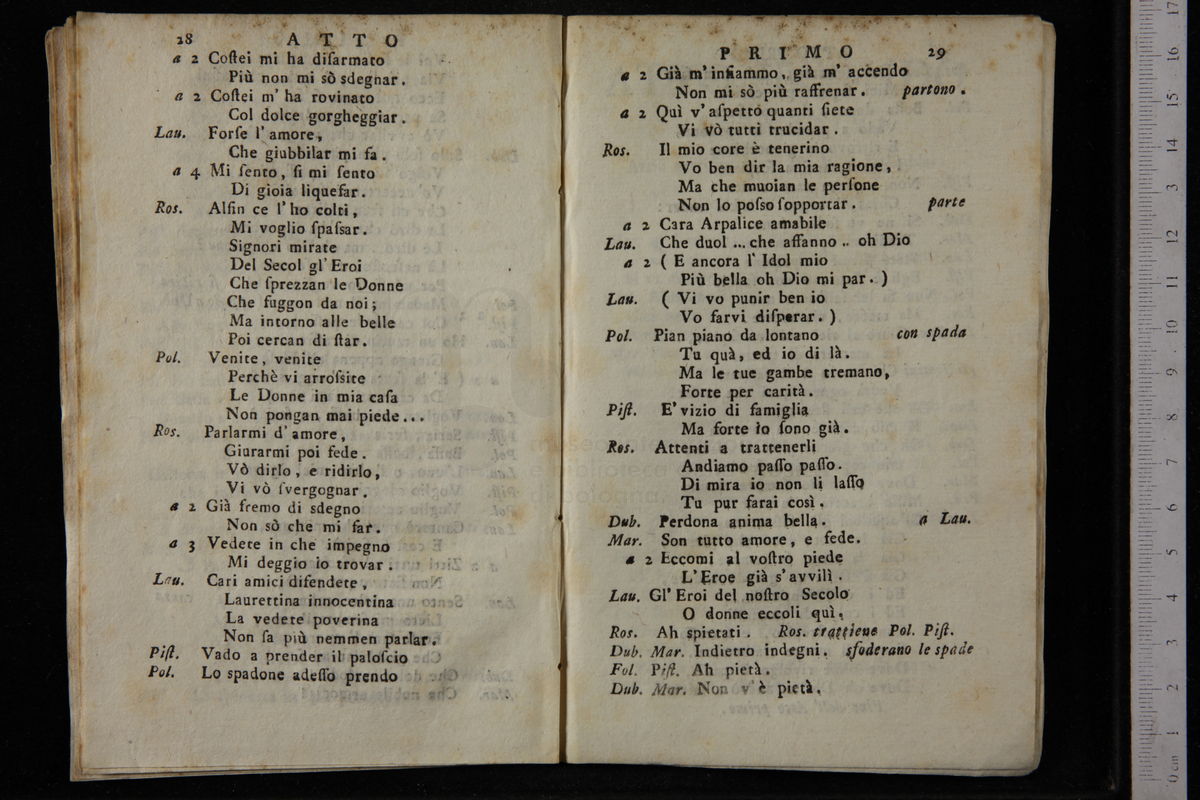 28 ATTO
a 2 Coſtei mi ha diſarmato
Più non mi sò sdegnar.
a 2 Coſtei m' ha rovinato
Col dolce gorgheggiar.
Lau. Forſe l' amore,
Che giubbilar mi fa.
a 4 Mi ſento, ſi mi ſento
Di gioia liquefar.
Ros. Alfin ce l' ho colti,
Mi voglio ſpaſsar.
Signori mirate
Del Secol gl' Eroi
Che ſprezzan le Donne
Che fuggon da noi;
Ma intorno alle belle
Poi cercan di ſtar.
Pol. Venite, venite
Perchè vi arroſsite
Le Donne in mia caſa
Non pongan mai piede...
Ros. Parlarmi d' amore,
Giurarmi poi fede.
Vò dirlo, e ridirlo,
Vi vò ſvergognar.
a 2 Già fremo di sdegno
Non sò che mi far.
a 3 Vedete in che impegno
Mi deggio io trovar.
Lau. Cari amici difendete,
Laurettina innocentina
La vedete poverina
Non ſa più nemmen parlar.
Piſt. Vado a prender il paloſcio
Pol. Lo spadone adeſſo prendo
PRIMO 29
a 2 Già m' infiammo, già m' accendo
Non mi sò più raffrenar. partono.
a 2 Quì v' aſpetto quanti ſiete
Vi vò tutti trucidar.
Ros. Il mio core è tenerino
Vo ben dir la mia ragione,
Ma che muoian le perſone
Non lo poſso ſopportar. parte
a 2 Cara Arpalice amabile
Lau. Che duol ... che affanno .. oh Dio
a 2 ( E ancora l' Idol mio
Più bella oh Dio mi par. )
Lau. ( Vi vo punir ben io
Vo farvi diſperar. )
Pol. Pian piano da lontano con spada
Tu quà, ed io di là.
Ma le tue gambe tremano,
Forte per carità.
Piſt. E' vizio di famiglia
Ma forte io ſono già.
Ros. Attenti a trattenerli
Andiamo paſſo paſſo.
Di mira io non li laſſo
Tu pur farai così.
Dub. Perdona anima bella. a Lau.
Mar. Son tutto amore, e fede.
a 2 Eccomi al voſtro piede
L' Eroe già s' avvilì.
Lau. Gl' Eroi del noſtro Secolo
O donne eccoli quì.
Ros. Ah spietati. Ros. trattiene Pol. Piſt.
Dub. Mar. Indietro indegni. sfoderano le spade
Fol. Piſt. Ah pietà.
Dub. Mar. Non v' è pietà.